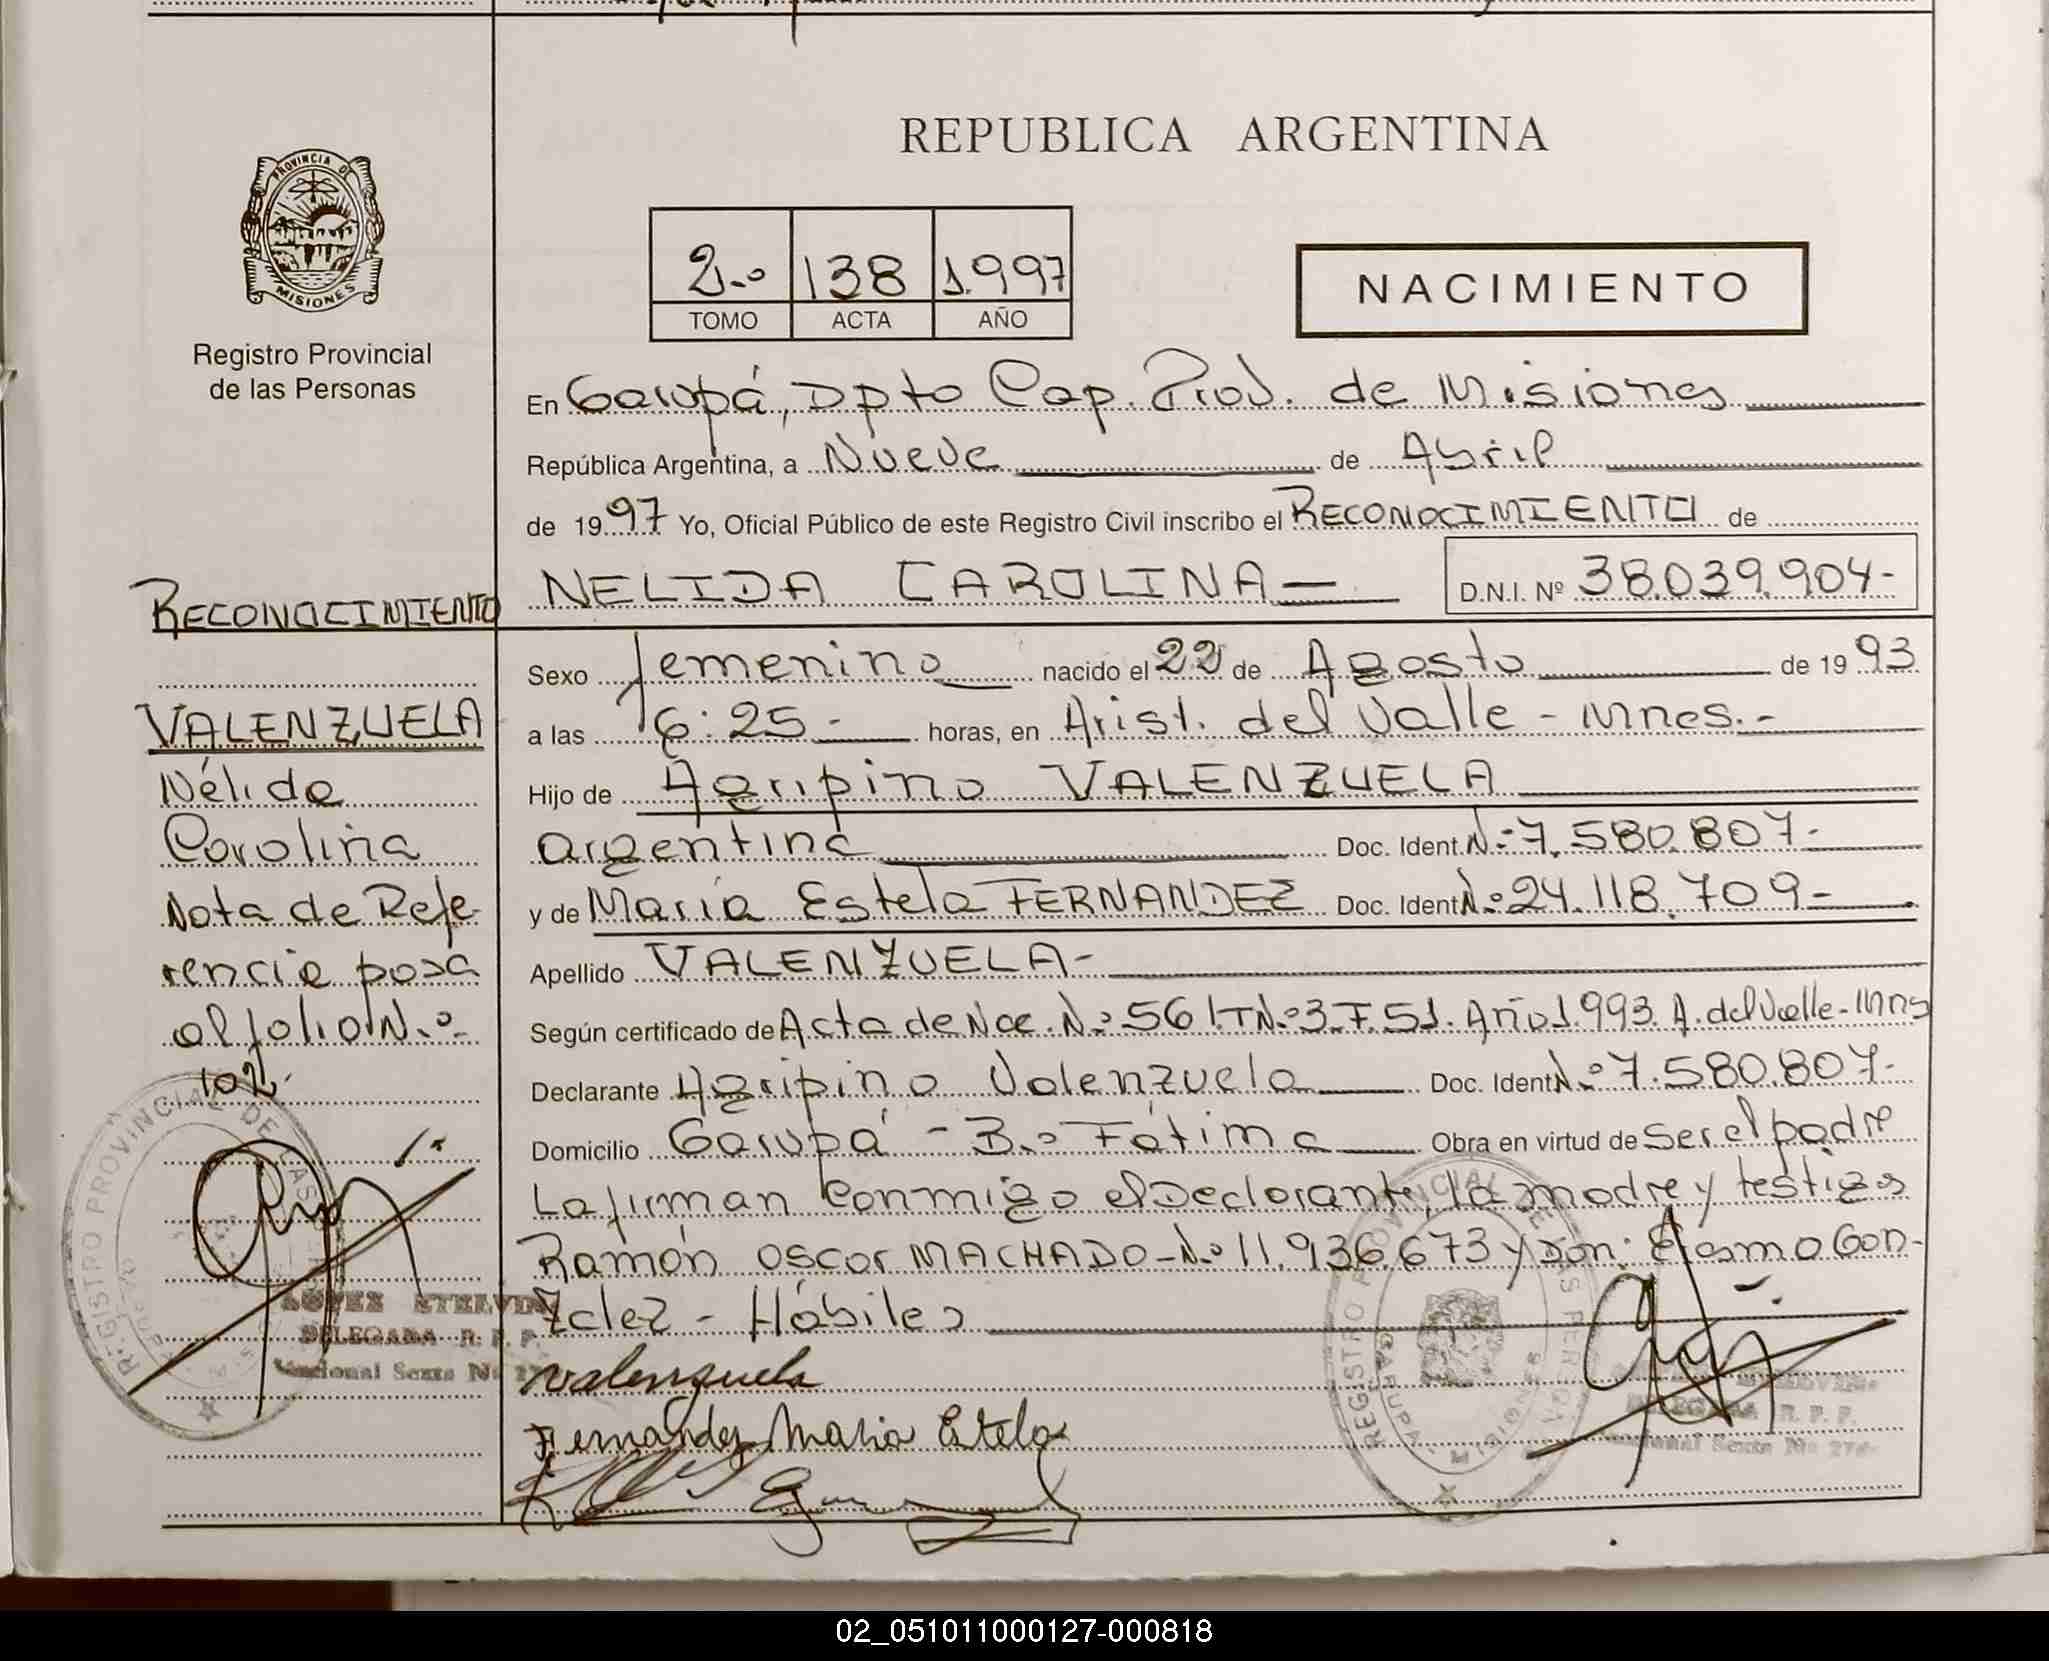 REPUBLICA ARGENTINA
PROVINCIA DE
MISIONES
Registro Provincial
de las Personas
2.º 138 1.997
TOMO ACTA AÑO
NACIMIENTO
En Garupá, Dpto Cap. Prov. de Misiones
República Argentina, a Nueve de Abril
de 1997 Yo, Oficial Público de este Registro Civil inscribo el RECONOCIMIENTO de
NELIDA CAROLINA D.N.I. Nº 38.039.904-
Sexo femenino nacido el 22 de Agosto de 1993
a las 16:25- horas, en Arist. del Valle - Mnes.-
Hijo de Agripino VALENZUELA
argentina Doc. Ident. Nº 7.580.807-
y de María Estela FERNANDEZ Doc. Ident Nº 24.118.709-
Apellido VALENZUELA-
Según certificado de Acta de Nac. Nº 561. T Nº 3. F. 51. Año 1.993. A. del Valle-Mns
Declarante Agripino Valenzuela Doc. Ident Nº 7.580.807-
Domicilio Garupá - B.º Fátima Obra en virtud de ser el padre
La firman conmigo el Declarante, la madre y testigos
Ramón Oscar MACHADO-Nº 11.936.673 y Don: Erasmo Gon-
zalez - Hábiles
Valenzuela
Fernandez Maria Estela
RECONOCIMIENTO
VALENZUELA
Nélida
Carolina
Nota de Refe-
rencia pasa
al folio N.º
102.
REGISTRO PROVINCIAL DE LAS
LOPEZ ETELVINA
DELEGADA R. P. P.
REGISTRO PROVINCIAL DE LAS PERSONAS
GARUPA - MISIONES
DELEGADA R. P. P.
02_051011000127-000818